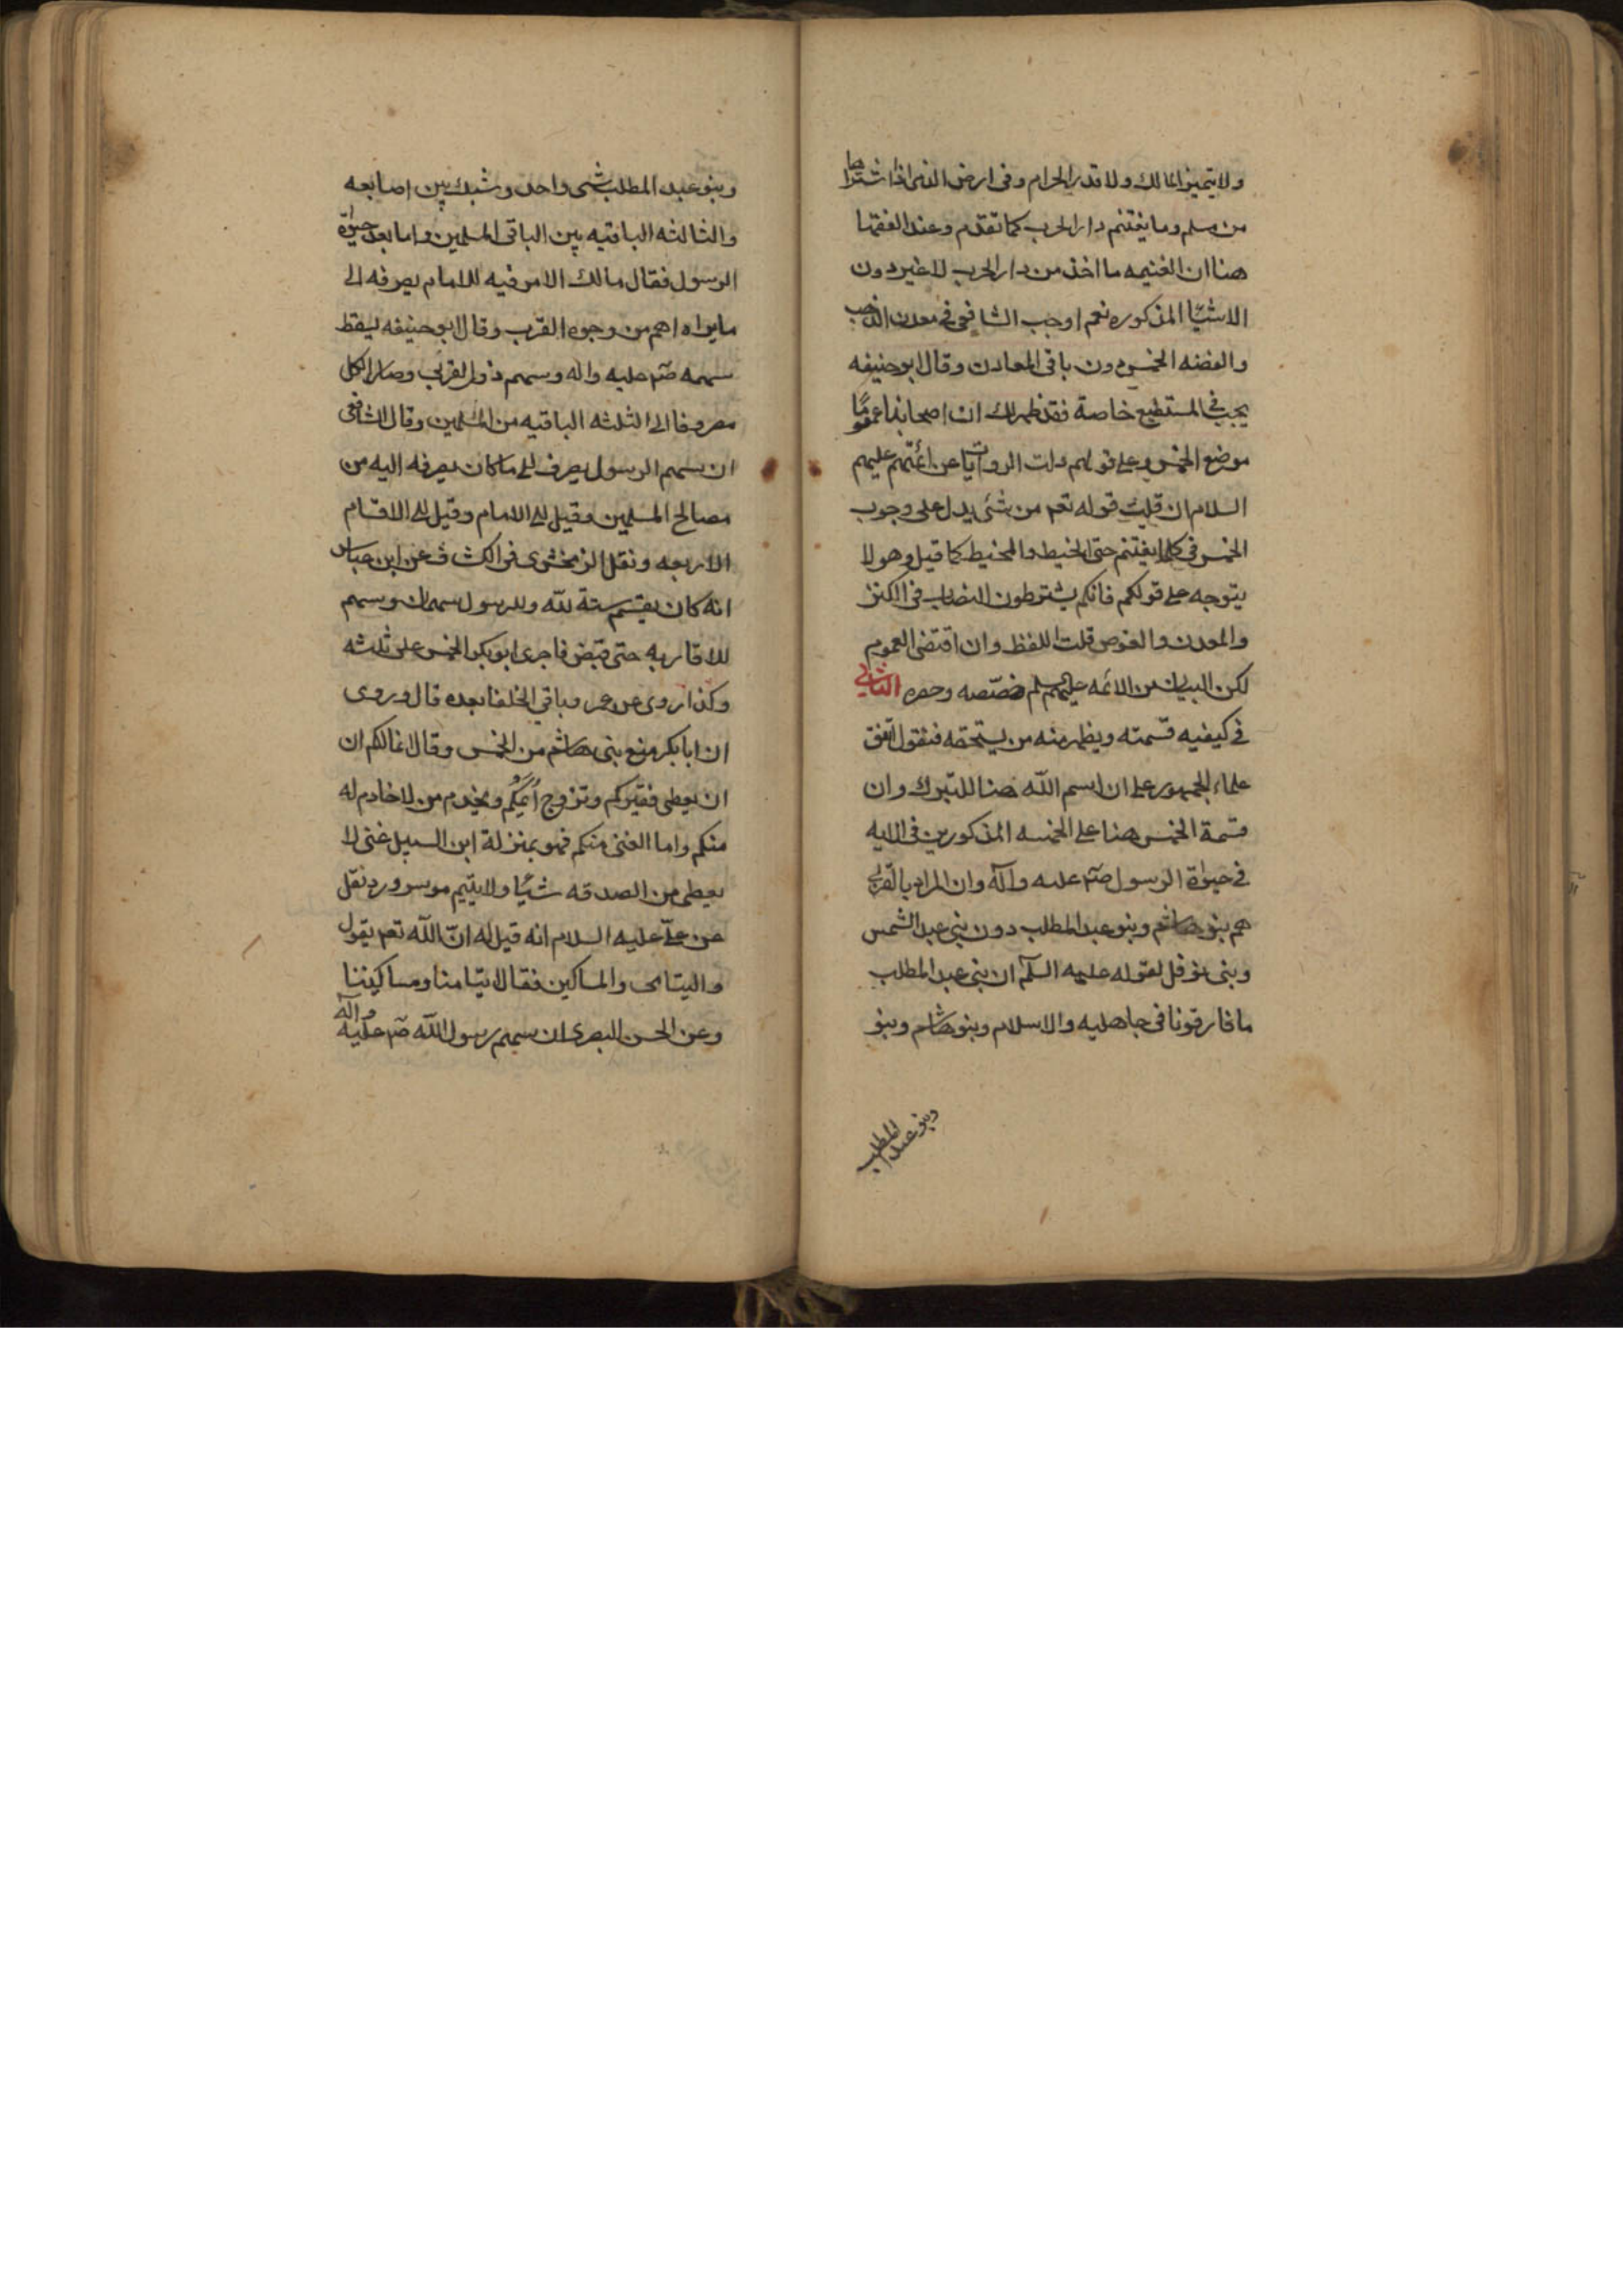 ولا يتميز المالك ولا قدر الحرام وفى ارض الذمى اذا اشتراها
من مسلم وما يغتنم دار الحرب كما تقدم وعند الفقها
هنا ان الغنيمه ما اخذ من دار الحرب لا غير دون
الاشيا المذكوره نعم اوجب الشافعى فى معدن الذهب
والفضه الخمس دون باقى المعادن وقال ابو حنيفه
يجب فى المنطبع خاصة فقد ظهر لك ان اصحابنا عمموا
موضع الخمس وعلى قولهم دلت الروايات عن ائمتهم عليهم
السلام ان قلت قوله تعم من شئ يدل على وجوب
الخمس فى كلما يغتنم حتى الخيط والمخيط كما قيل وهو لا
يتوجه على قولكم فانكم يشترطون النصاب فى الكنز
والمعدن والغوص قلت اللفظ وان اقتضى العموم
لكن البيان من الائمه عليهم سلم خصّصه وحصره الثانى
فى كيفيه قسمته ويظهر منه من يستحقه فنقول اتفق
علماء الجمهور على ان اسم اللّه هنا للتبرك وان
قسمة الخمس هنا على الخمسه المذكورين فى الايه
فى حيوة الرسول صم عليه وآله وان المراد بالقربى
هم بنو هاشم وبنو عبد المطلب دون بنى عبد الشمس
وبنى نوفل لقوله عليه السلم ان بنى عبد المطلب
ما فارقونا فى جاهليه والاسلام وبنو هاشم وبنو
وبنو عبد المطلب
وبنو عبد المطلب شى واحد وشبك بين اصابعه
والثالثه الباقيه بين الباقى المسلمين واما بعد حيوة
الرسول فقال مالك الامر فيه للامام يصرفه الى
ما يراه اهم من وجوه القرب وقال ابو حنيفه يسقط
سهمه صم عليه واله وسهم ذوى القربى وصار الكل
مصروفا الى الثلثه الباقيه من المسلمين وقال الشافعى
ان سهم الرسول يصرف الى ما كان يصرفه اليه من
مصالح المسلمين وقيل الى الامام وقيل الى الاقسام
الاربعه ونقل الزمخشرى فى الكشاف عن ابن عباس
انه كان يقسم ستة للّه وللرسول سهمان وسهم
لاقاربه حتى قبض فاجرى ابو بكر الخمس على ثلثه
وكذا روى عن عمر وباقى الخلفا بعده قال وروى
ان ابا بكر منع بنى هاشم من الخمس وقال انما لكم ان
ان يعطى فقيركم وتزوج ايّمكم ويخدم من لا خادم له
منكم واما الغنى منكم فهو بمنزلة ابن السبيل غنى لا
يعطى من الصدقه شيًا ولا يتيم موسر ورد نقل
عن علىّ عليه السلام انه قيل له انّ اللّه تعم يقول
واليتامى والمساكين فقال ايتامنا ومساكيننا
وعن الحسن البصرى ان سهم رسول اللّه صم عليه وآله